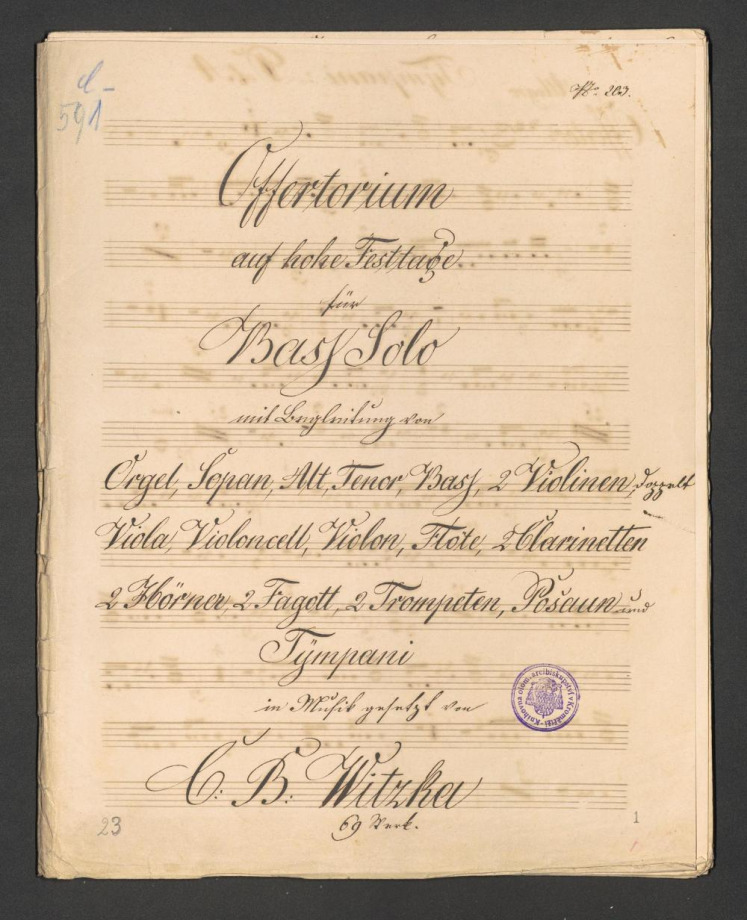 d-
591
No: 203.
Offertorium
auf hohe Festtage
für
Bass Solo
mit Begleitung von
Orgel, Sopan, Alt, Tenor, Bass, 2 Violinen, doppelt
Viola, Violoncell, Violon, Flöte, 2 Clarinetten
2 Hörner, 2 Fagott, 2 Trompeten, Posaun und
Tÿmpani
in Musik gesetzt von
C: B: Witzka
69 Werk.
Knihovna olom. arcibiskupství v Kroměříži
23
1